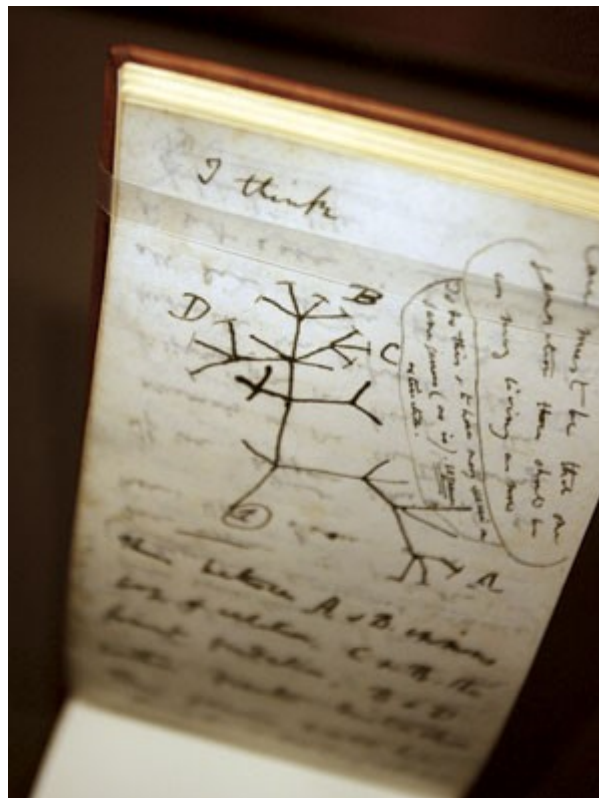 I think
D
B
C
A
1
Case must be that one
generation then should be
as many living as now
To do this & to have many species in
same genus (as is). requires
extinction.
Thus between A & B. immense
gap of relation. C & B. the
finest gradation, B & D
rather greater distinction